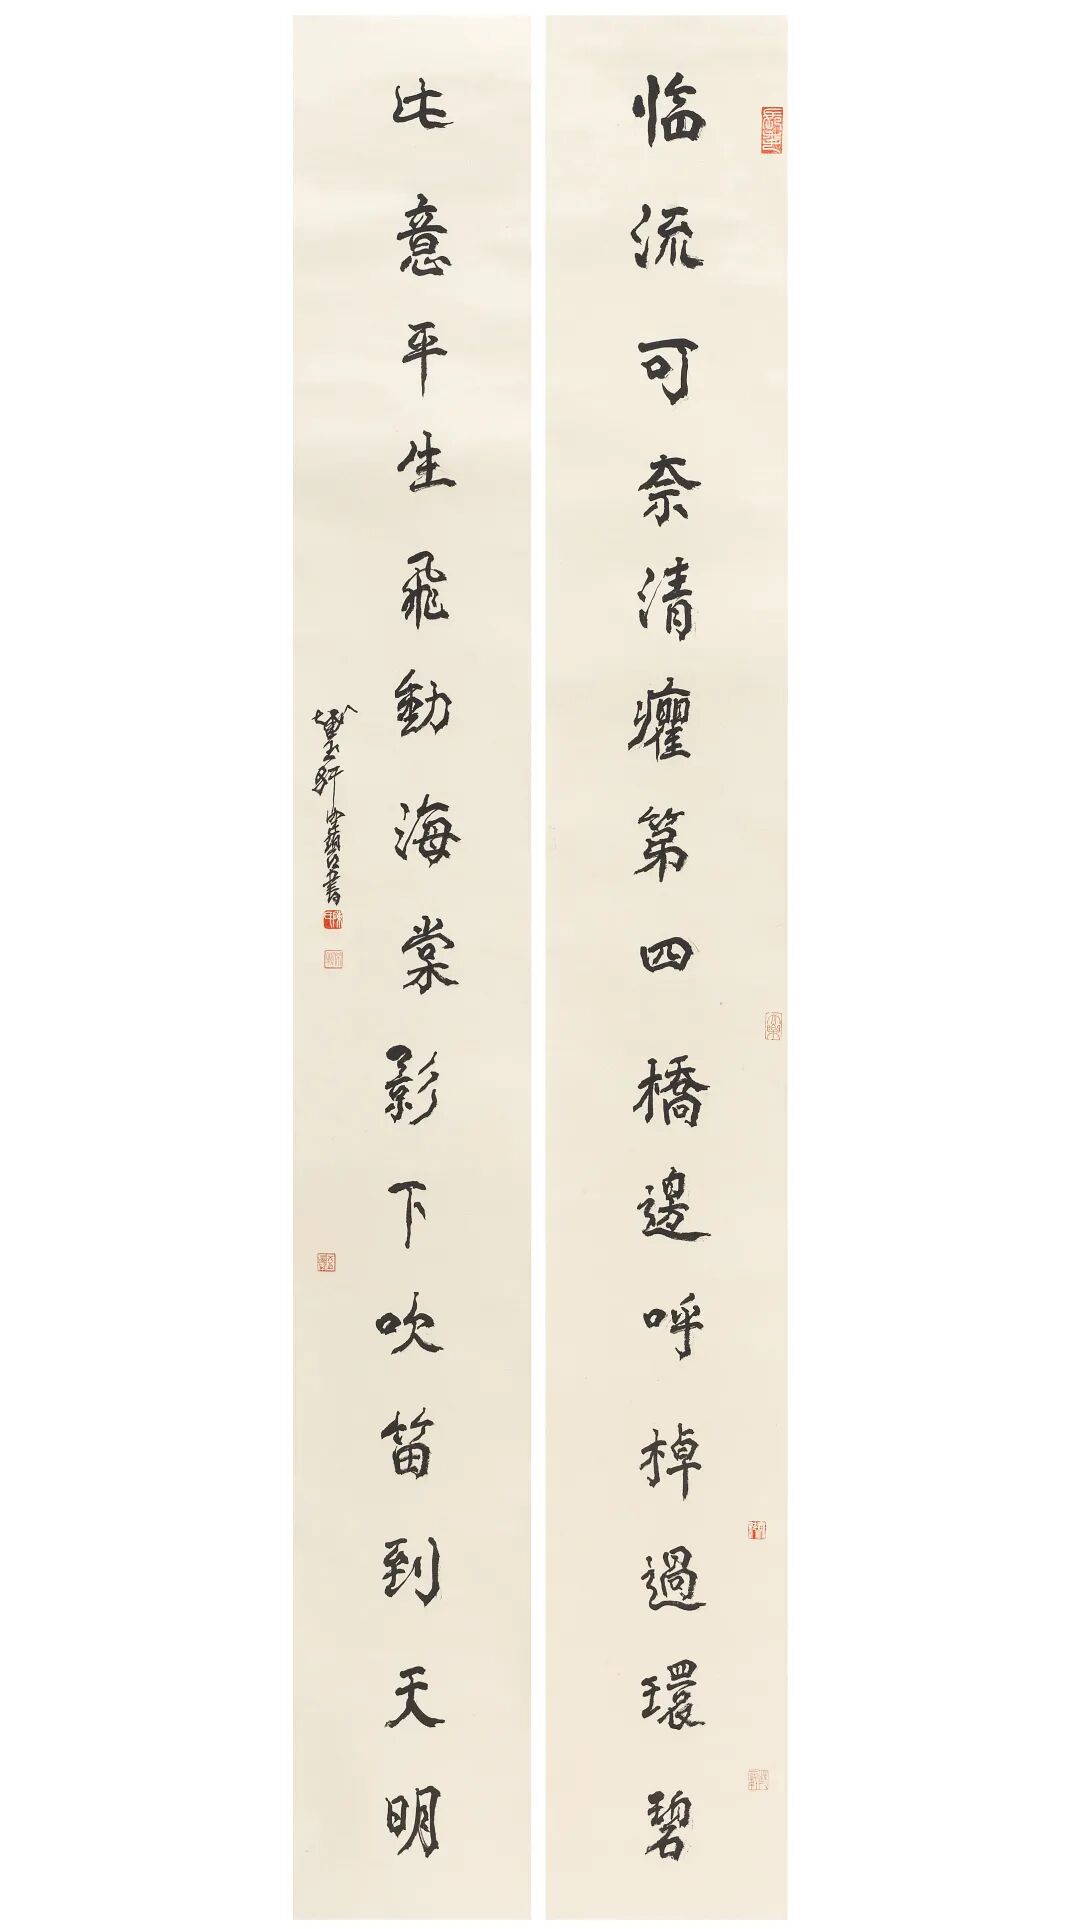 临流可奈清癯第四橋邊呼棹過環碧
此意平生飛動海棠影下吹笛到天明